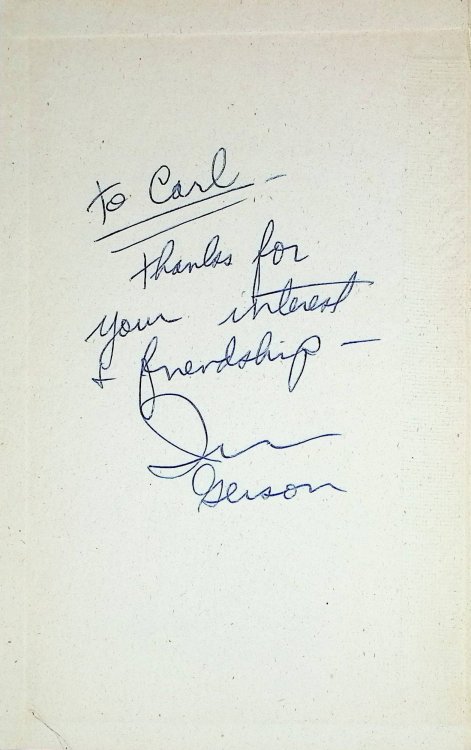 To Carl –
Thanks for
your interest
& friendship –
Gerson